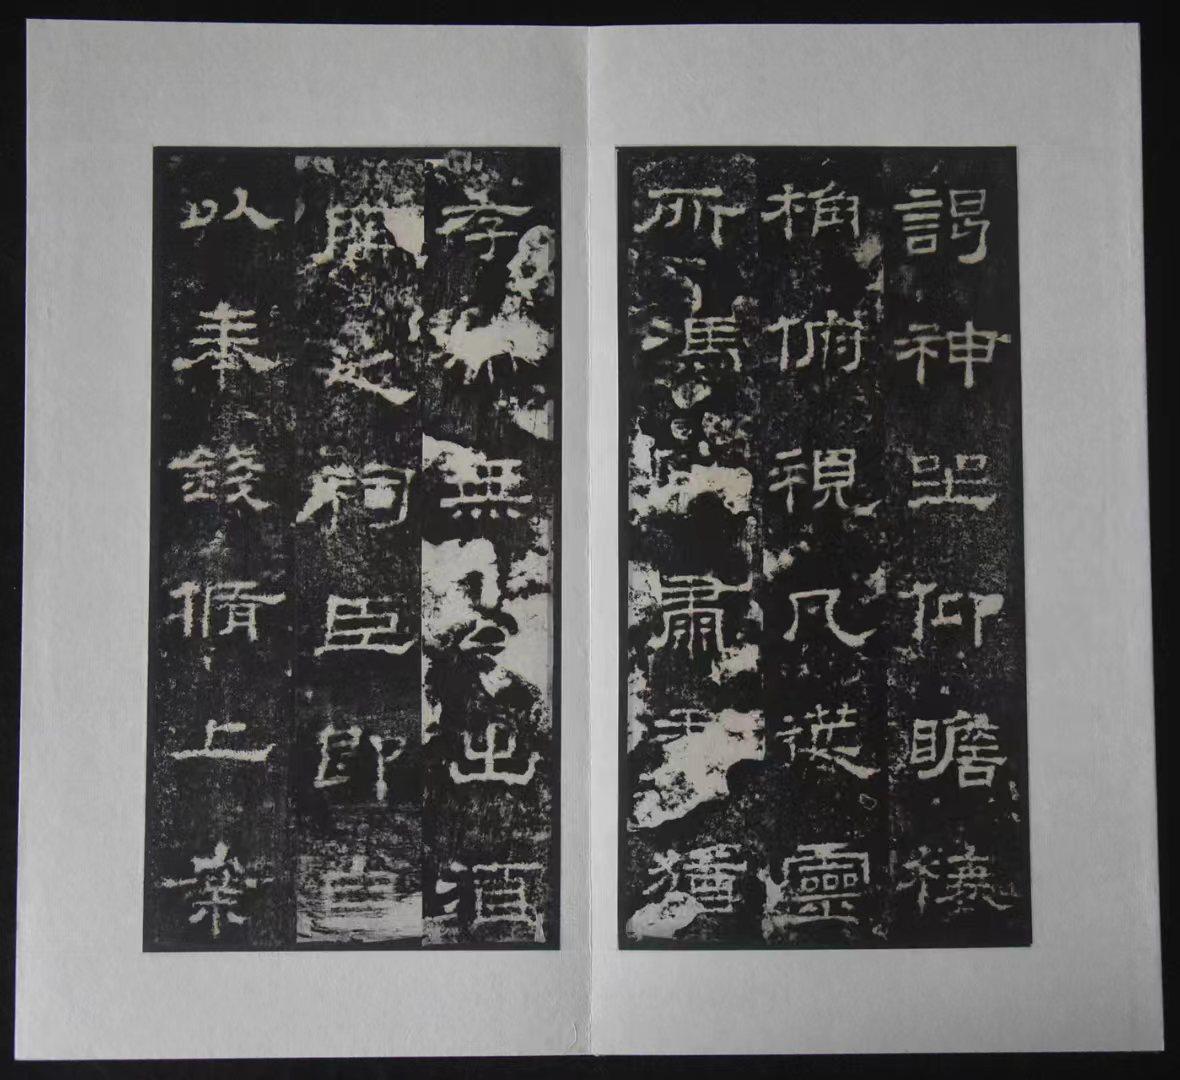 謁神坐仰瞻榱
桷俯視几筵靈
所馮肅猶
存而無公出酒
脯之祠臣即自
以奉錢脩上案